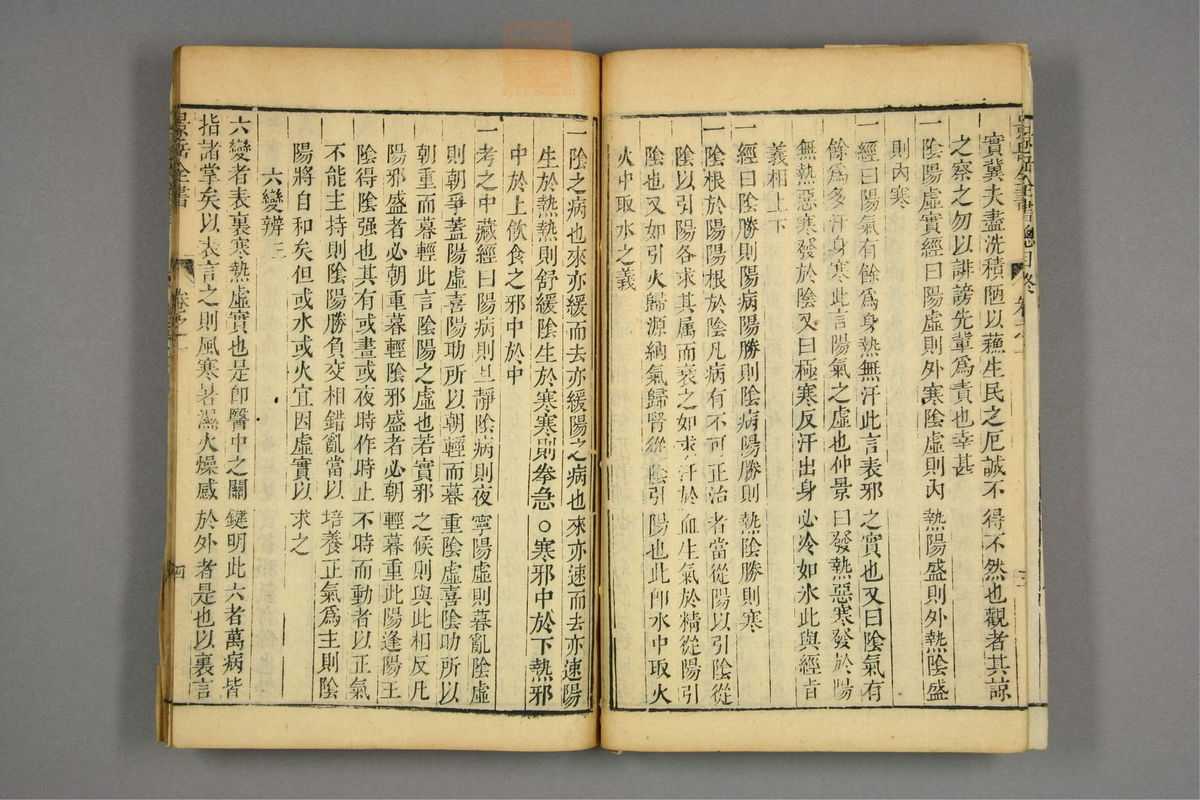 景岳全書總目終 卷之一 三
實冀夫盡洗積陋以蘓生民之厄誠不得不然也觀者其諒
之察之勿以誹謗先輩爲責也幸甚
一陰陽虛實經曰陽虛則外寒陰虛則內熱陽盛則外熱陰盛
則內寒
一經曰陽氣有餘爲身熱無汗此言表邪之實也又曰陰氣有
餘爲多汗身寒此言陽氣之虛也仲景曰發熱惡寒發於陽
無熱惡寒發於陰又曰極寒反汗出身必冷如氷此與經旨
義相上下
一經曰陰勝則陽病陽勝則陰病陽勝則熱陰勝則寒
一陰根於陽陽根於陰凡病有不可正治者當從陽以引陰從
陰以引陽各求其属而衰之如求汗於血生氣於精從陽引
陰也又如引火歸源納氣歸腎從陰引陽也此卽水中取火
火中取水之義
一陰之病也來亦緩而去亦緩陽之病也來亦速而去亦速陽
生於熱熱則舒緩陰生於寒寒則拳急○寒邪中於下熱邪
中於上飲食之邪中於中
一考之中藏經曰陽病則旦靜陰病則夜寧陽虛則暮亂陰虛
則朝爭蓋陽虛喜陽助所以朝輕而暮重陰虛喜陰助所以
朝重而暮輕此言陰陽之虛也若實邪之候則與此相反凡
陽邪盛者必朝重暮輕陰邪盛者必朝輕暮重此陽逢陽王
陰得陰强也其有或晝或夜時作時止不時而動者以正氣
不能主持則陰陽勝負交相錯亂當以培養正氣爲主則陰
陽將自和矣但或水或火宜因虛實以求之
六變辨 三
六變者表裏寒熱虛實也是卽醫中之關鍵明此六者萬病皆
指諸掌矣以表言之則風寒暑濕火燥感於外者是也以裏言
景岳全書 卷之一 四